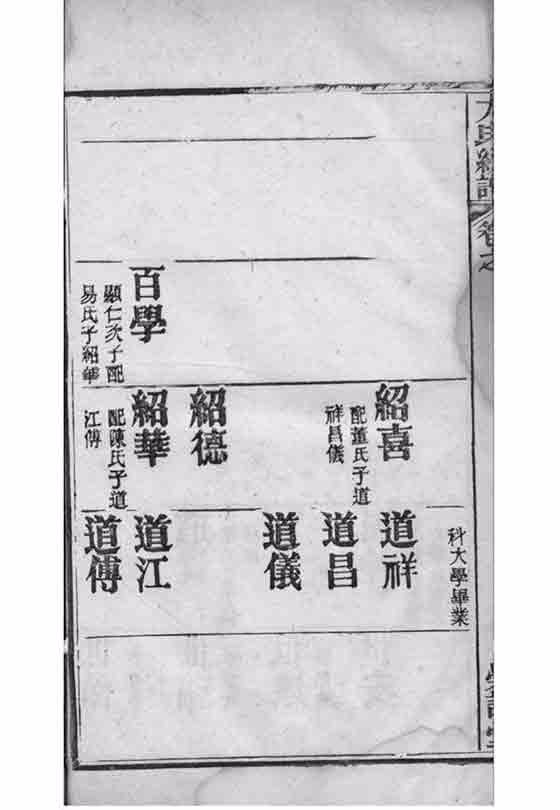 氏
卷之
科大學畢業
百學
顯仁次子配
易氏子紹華
紹喜
配董氏子道
祥昌儀
紹德
紹華
配陳氏子道
江傳
道祥
道昌
道儀
道江
道傳